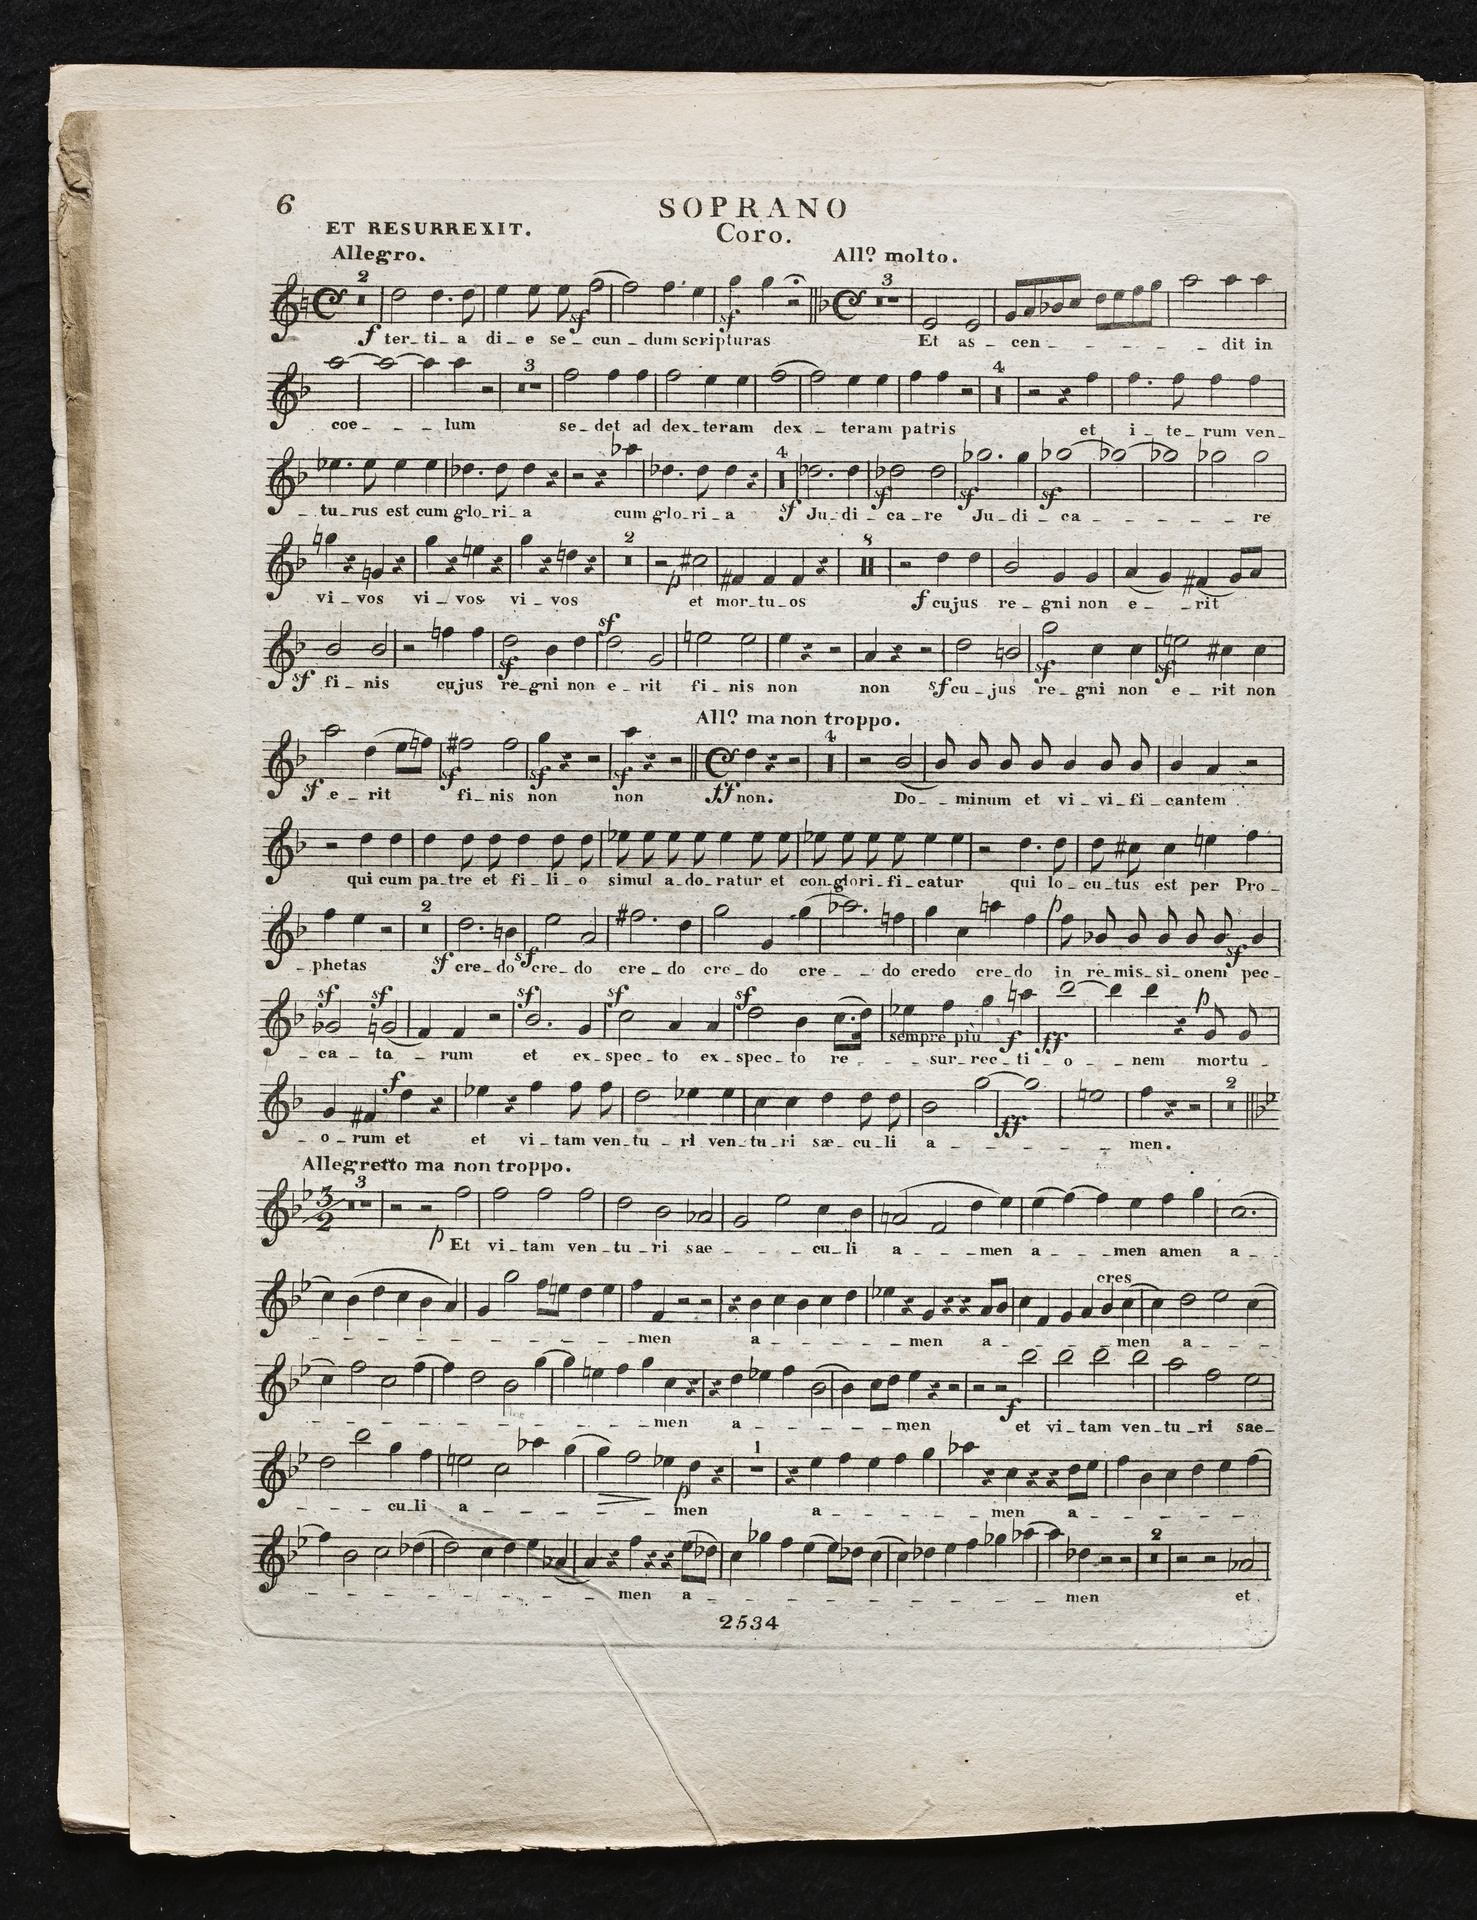 6
SOPRANO
ET RESURREXIT.
Coro.
Allegro.
All? molto.
2
3
f ter_ti_a di_e se_cun_dum scripturas Et as_cen_ _ _ _ _ _dit in
sf
sf
3
4
coe_ _ _lum se_det ad dex_teram dex_teram patris et i_te_rum ven_
4
sf
sf
sf
_tu_rus est cum glo_ri_a cum glo_ri_a sf Ju_di_ca_re Ju_di_ca_ _ _ _ _ re
2
8
p
vi_vos vi_vos vi_vos et mor_tu_os f cujus re_gni non e_ _rit
sf
sf
sf
sf
sf fi_nis cujus re_gni non e_rit fi_nis non non sf cu_jus re_gni non e_rit non
All? ma non troppo.
4
sf
sf
sf
sf e_rit fi_nis non non ff non. Do_ _minum et vi_vi_fi_cantem
qui cum pa_tre et fi_li_o simul a_do_ratur et con_glori_fi_catur qui lo_cu_tus est per Pro_
2
p
sf
_phetas sf cre_do sf cre_do cre_do cre_do cre_ _do credo cre_do in re_mis_si_onem pec_
sf
sf
sf
sf
sf
p
sempre più f ff
_ca_ta_rum et ex_spec_to ex_spec_to re_ _ _sur_rec_ti_o_ _nem mortu_
f
2
ff
_o_rum et et vi_tam ven_tu_ri ven_tu_ri sæ_cu_li a_ _ _ _ _ _men.
Allegretto ma non troppo.
3
3
2
p Et vi_tam ven_tu_ri sae_ _ _ _cu_li a_ _ _men a_ _ _men amen a_
cres
_ _ _ _ _ _ _ _men a_ _ _ _ _men a_ _ _ _men a_ _ _
f
_ _ _ _ _ _ _ _men a_ _ _ _ _men et vi_tam ven_tu_ri sae_
1
p
_ _ _cu_li a_ _ _ _ _ _men a_ _ _ _ _men a_ _ _ _ _
2
_ _ _ _ _ _ _ _men a_ _ _ _ _ _ _ _ _men et
2534